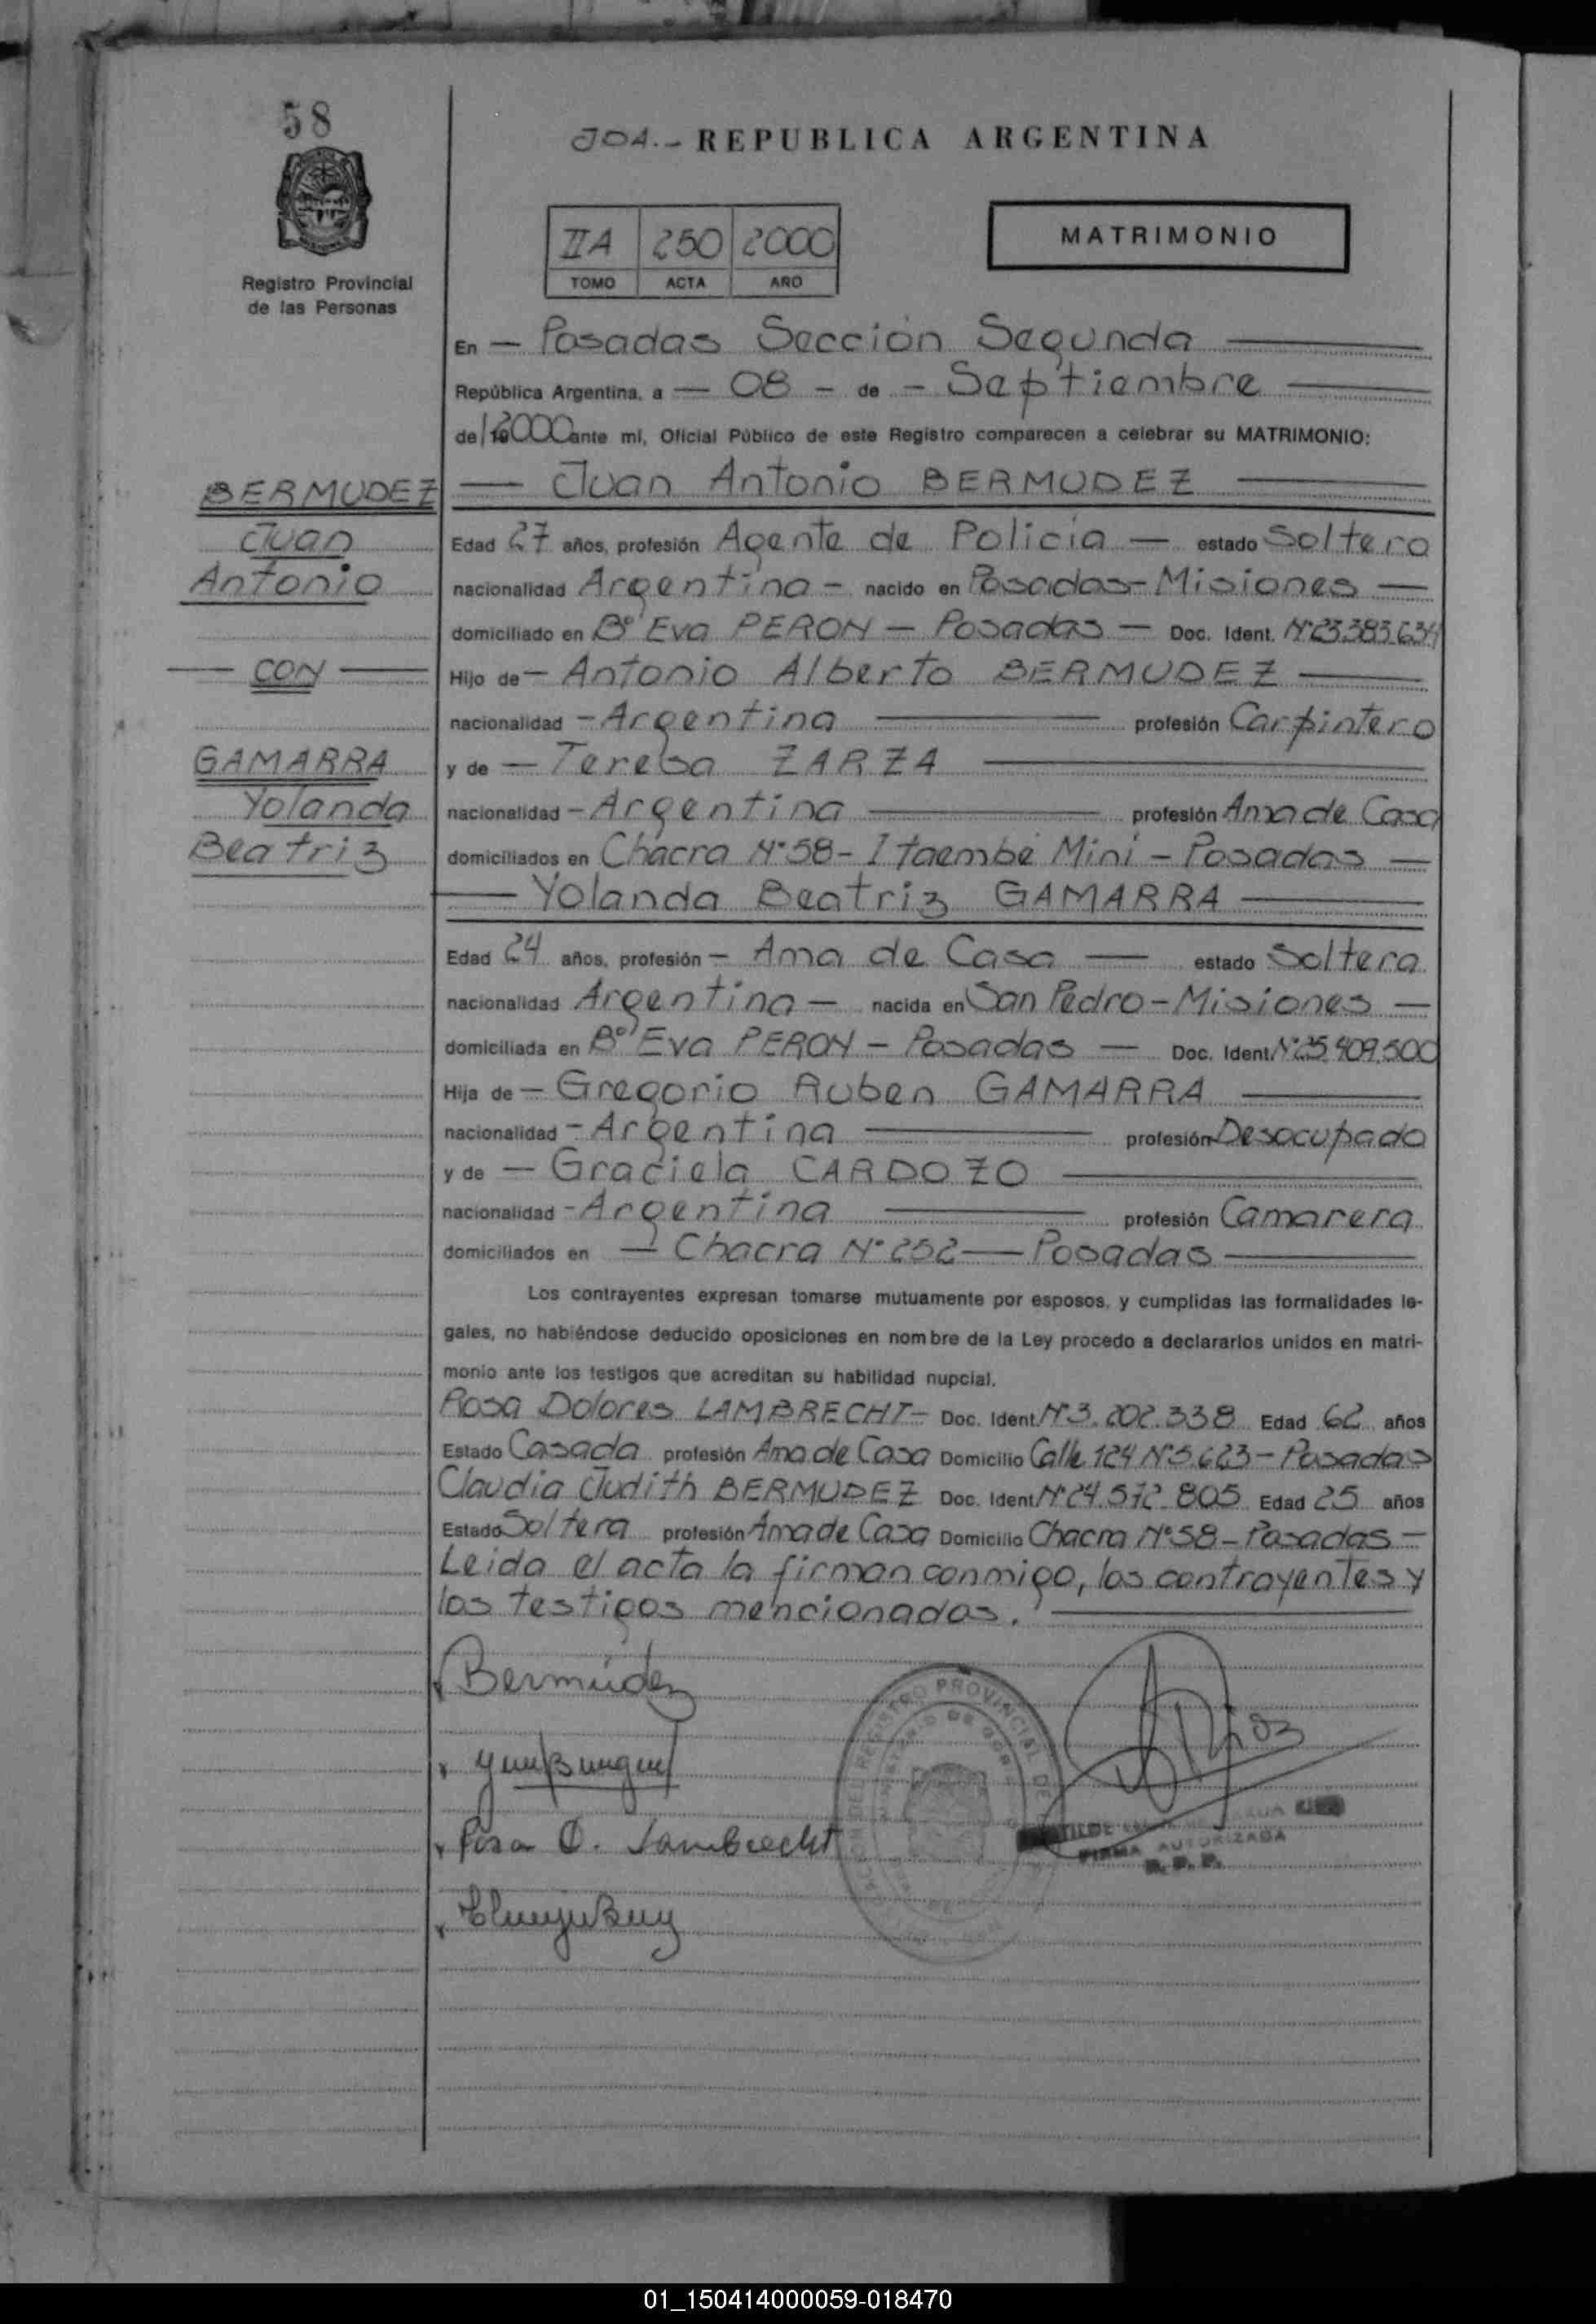 58
JOA.- REPUBLICA ARGENTINA
Registro Provincial
de las Personas
IIA 250 2000
TOMO ACTA AÑO
MATRIMONIO
En — Posadas Sección Segunda
República Argentina, a — 08 — de — Septiembre
de 2000 ante mí, Oficial Público de este Registro comparecen a celebrar su MATRIMONIO:
BERMUDEZ
Juan
Antonio
CON
GAMARRA
Yolanda
Beatriz
— Juan Antonio BERMUDEZ —
Edad 27 años, profesión Agente de Policía — estado Soltero
nacionalidad Argentina — nacido en Posadas - Misiones —
domiciliado en Bº Eva PERON — Posadas — Doc. Ident. Nº 23.383.634
Hijo de — Antonio Alberto BERMUDEZ —
nacionalidad — Argentina — profesión Carpintero
y de — Teresa ZARZA —
nacionalidad — Argentina — profesión Ama de Casa
domiciliados en Chacra Nº 58 - Itaembé Miní - Posadas —
— Yolanda Beatriz GAMARRA —
Edad 24 años, profesión — Ama de Casa — estado Soltera
nacionalidad Argentina — nacida en San Pedro - Misiones —
domiciliada en Bº Eva PERON — Posadas — Doc. Ident. Nº 25.409.500
Hija de — Gregorio Ruben GAMARRA —
nacionalidad — Argentina — profesión Desocupado
y de — Graciela CARDOZO —
nacionalidad — Argentina — profesión Camarera
domiciliados en — Chacra Nº 252 — Posadas —
Los contrayentes expresan tomarse mutuamente por esposos, y cumplidas las formalidades le-
gales, no habiéndose deducido oposiciones en nombre de la Ley procedo a declararlos unidos en matri-
monio ante los testigos que acreditan su habilidad nupcial.
Rosa Dolores LAMBRECHT — Doc. Ident. Nº 3.202.338 Edad 62 años
Estado Casada profesión Ama de Casa Domicilio Calle 124 Nº 5.623 - Posadas
Claudia Judith BERMUDEZ Doc. Ident. Nº 24.572.805 Edad 25 años
Estado Soltera profesión Ama de Casa Domicilio Chacra Nº 58 - Posadas —
Leida el acta la firman conmigo, los contrayentes y
los testigos mencionados. —
Bermúdez
Rosa D. Lambrecht
REGISTRO PROVINCIAL DE
FIRMA AUTORIZADA
R. P. P.
01_150414000059-018470